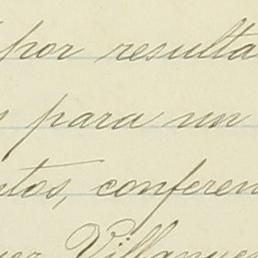 por resulta
para un
ntos, conferen
Villanue